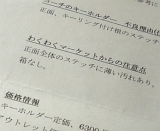 ーチのキーホルダー 不良理由
正面、キーリング付け根のステッチ
わくわくマーケットからの注意点
正面全体のステッチに薄い汚れあり、
箱なし。
価格情報
キーホルダー定価、6300
アウトレット